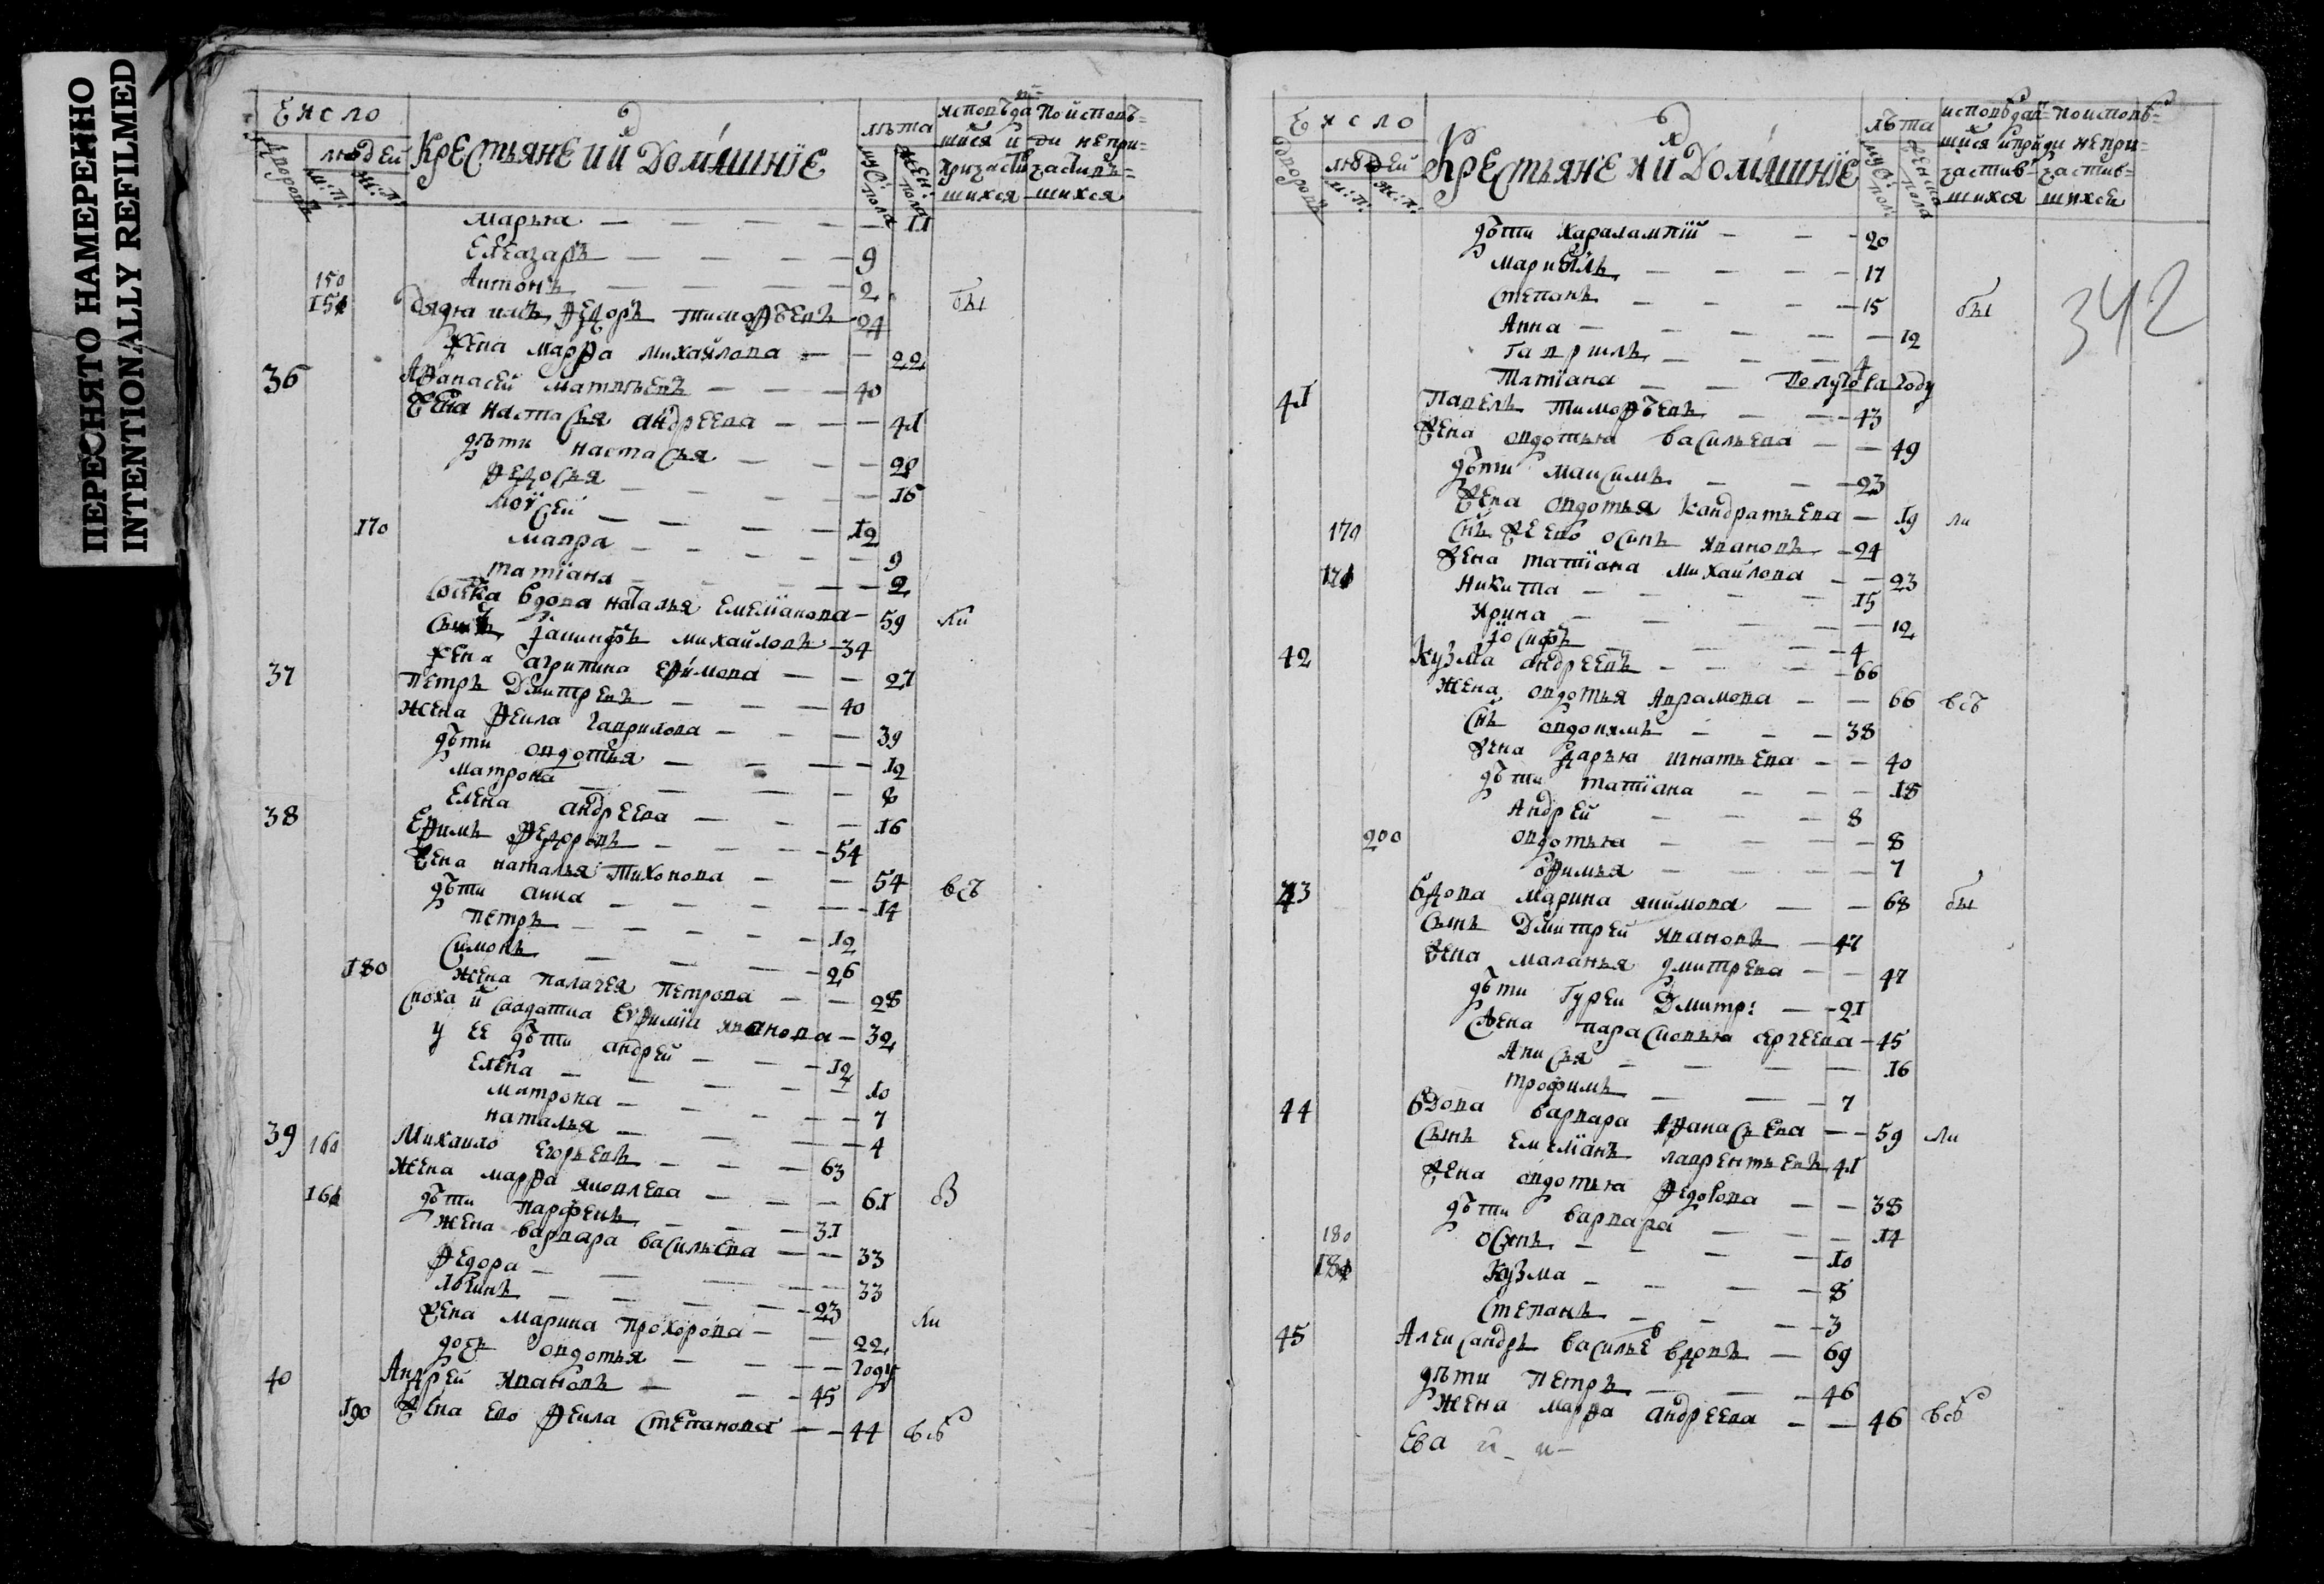 ПЕРЕСНЯТО НАМЕРЕННО
INTENTIONALLY REFILMED
Число
людей
м: п: ж: п:
Крестьяне и ихъ Домашніе
лѣта
муж: пола
жен: пола
исповѣдав-
шихся и
причастив-
шихся
по исповѣ-
ди непри-
частив-
шихся
Марья — 11
Елеазаръ — 9
150 Антонъ — 2
151 Дядя имъ Ѳедоръ Тимоѳѣевъ 24 бы
жена Марѳа Михайлова — 22
36 Аѳанасей Матвѣевъ — 40
жена Настасья Андреева — 41
дѣти Настасья — 20
Ѳедосья — 16
Моѵсей — 12
170 Мавра — 9
Татіана — 2
вдова Наталья Емеліанова — 59 ли
сынъ Іакинфъ Михайловъ — 34
жена Агрипина Еѳимова — 27
37 Петръ Дмитревъ — 40
жена Ѳекла Гаврилова — 39
дѣти Овдотья — 12
Матрона — 8
Елена Андреева — 16
38 Еѳимъ Ѳедоровъ — 54
жена Наталья Тихонова — 54 всѣ
дѣти Анна — 14
Петръ — 12
Симонъ — 26
180 жена Палагея Петрова — 28
сноха и салдатка Евѳимія Иванова — 32
у ее дѣти Андрей — 12
Елена — 10
Матрона — 7
Наталья — 4
39 160 Михаило Егорьевъ — 63
жена Марѳа Яковлева — 61 в
161 дѣти Парѳенъ — 31
жена Варвара Васильева — 33
Ѳедора — 33
Логинъ — 23
жена Марина Прохорова — 22 ли
дочь Овдотья — году
40 Андрей Ивановъ — 45
190 жена его Ѳекла Степанова — 44 всѣ
Число
людей
м: п: ж: п:
Крестьяне и ихъ Домашніе
лѣта
муж: пол
женска пола
исповѣдав-
шихся и при
частив-
шихся
по исповѣ-
ди непри-
частив-
шихся
342
дѣти Харалампій — 20
— 17
Степанъ — 15 бы
Анна — 12
Гаврилъ — 4
Татіана — полутора году
41 Павелъ Тимоѳѣевъ — 43
жена Овдотья Васильева — 49
дѣти Максимъ — 23
жена Овдотья Кондратьева — 19 ли
170 Осипъ Ивановъ — 24
жена Татіана Михайлова — 23
171 Никита — 15
Ирина — 12
Іосифъ — 4
42 Кузма Андреевъ — 66
жена Овдотья Аврамова — 66 всѣ
снъ Овдокимъ — 38
жена Дарья Игнатьева — 40
дѣти Татіана — 18
Андрей — 8
200 Овдотья — 8
Оѳимья — 7
43 вдова Марина Якимова — 68 бы
сынъ Дмитрей Ивановъ — 47
жена Маланья Дмитрева — 47
дѣти Гурей Дмитр: — 21
жена Парасковья Сергеева — 45
Анисья — 16
Трофимъ — 7
44 вдова Варвара Аѳанасьева — 59 ли
сынъ Емеліанъ Лаврентьевъ 41
жена Овдотья Ѳедорова — 38
дѣти Варвара — 14
180 Осипъ — 10
181 Кузма — 8
Степанъ — 3
45 Александръ Васильевъ вдовъ — 69
дѣти Петръ — 46
жена Марѳа Андреева — 46 всѣ
Ева